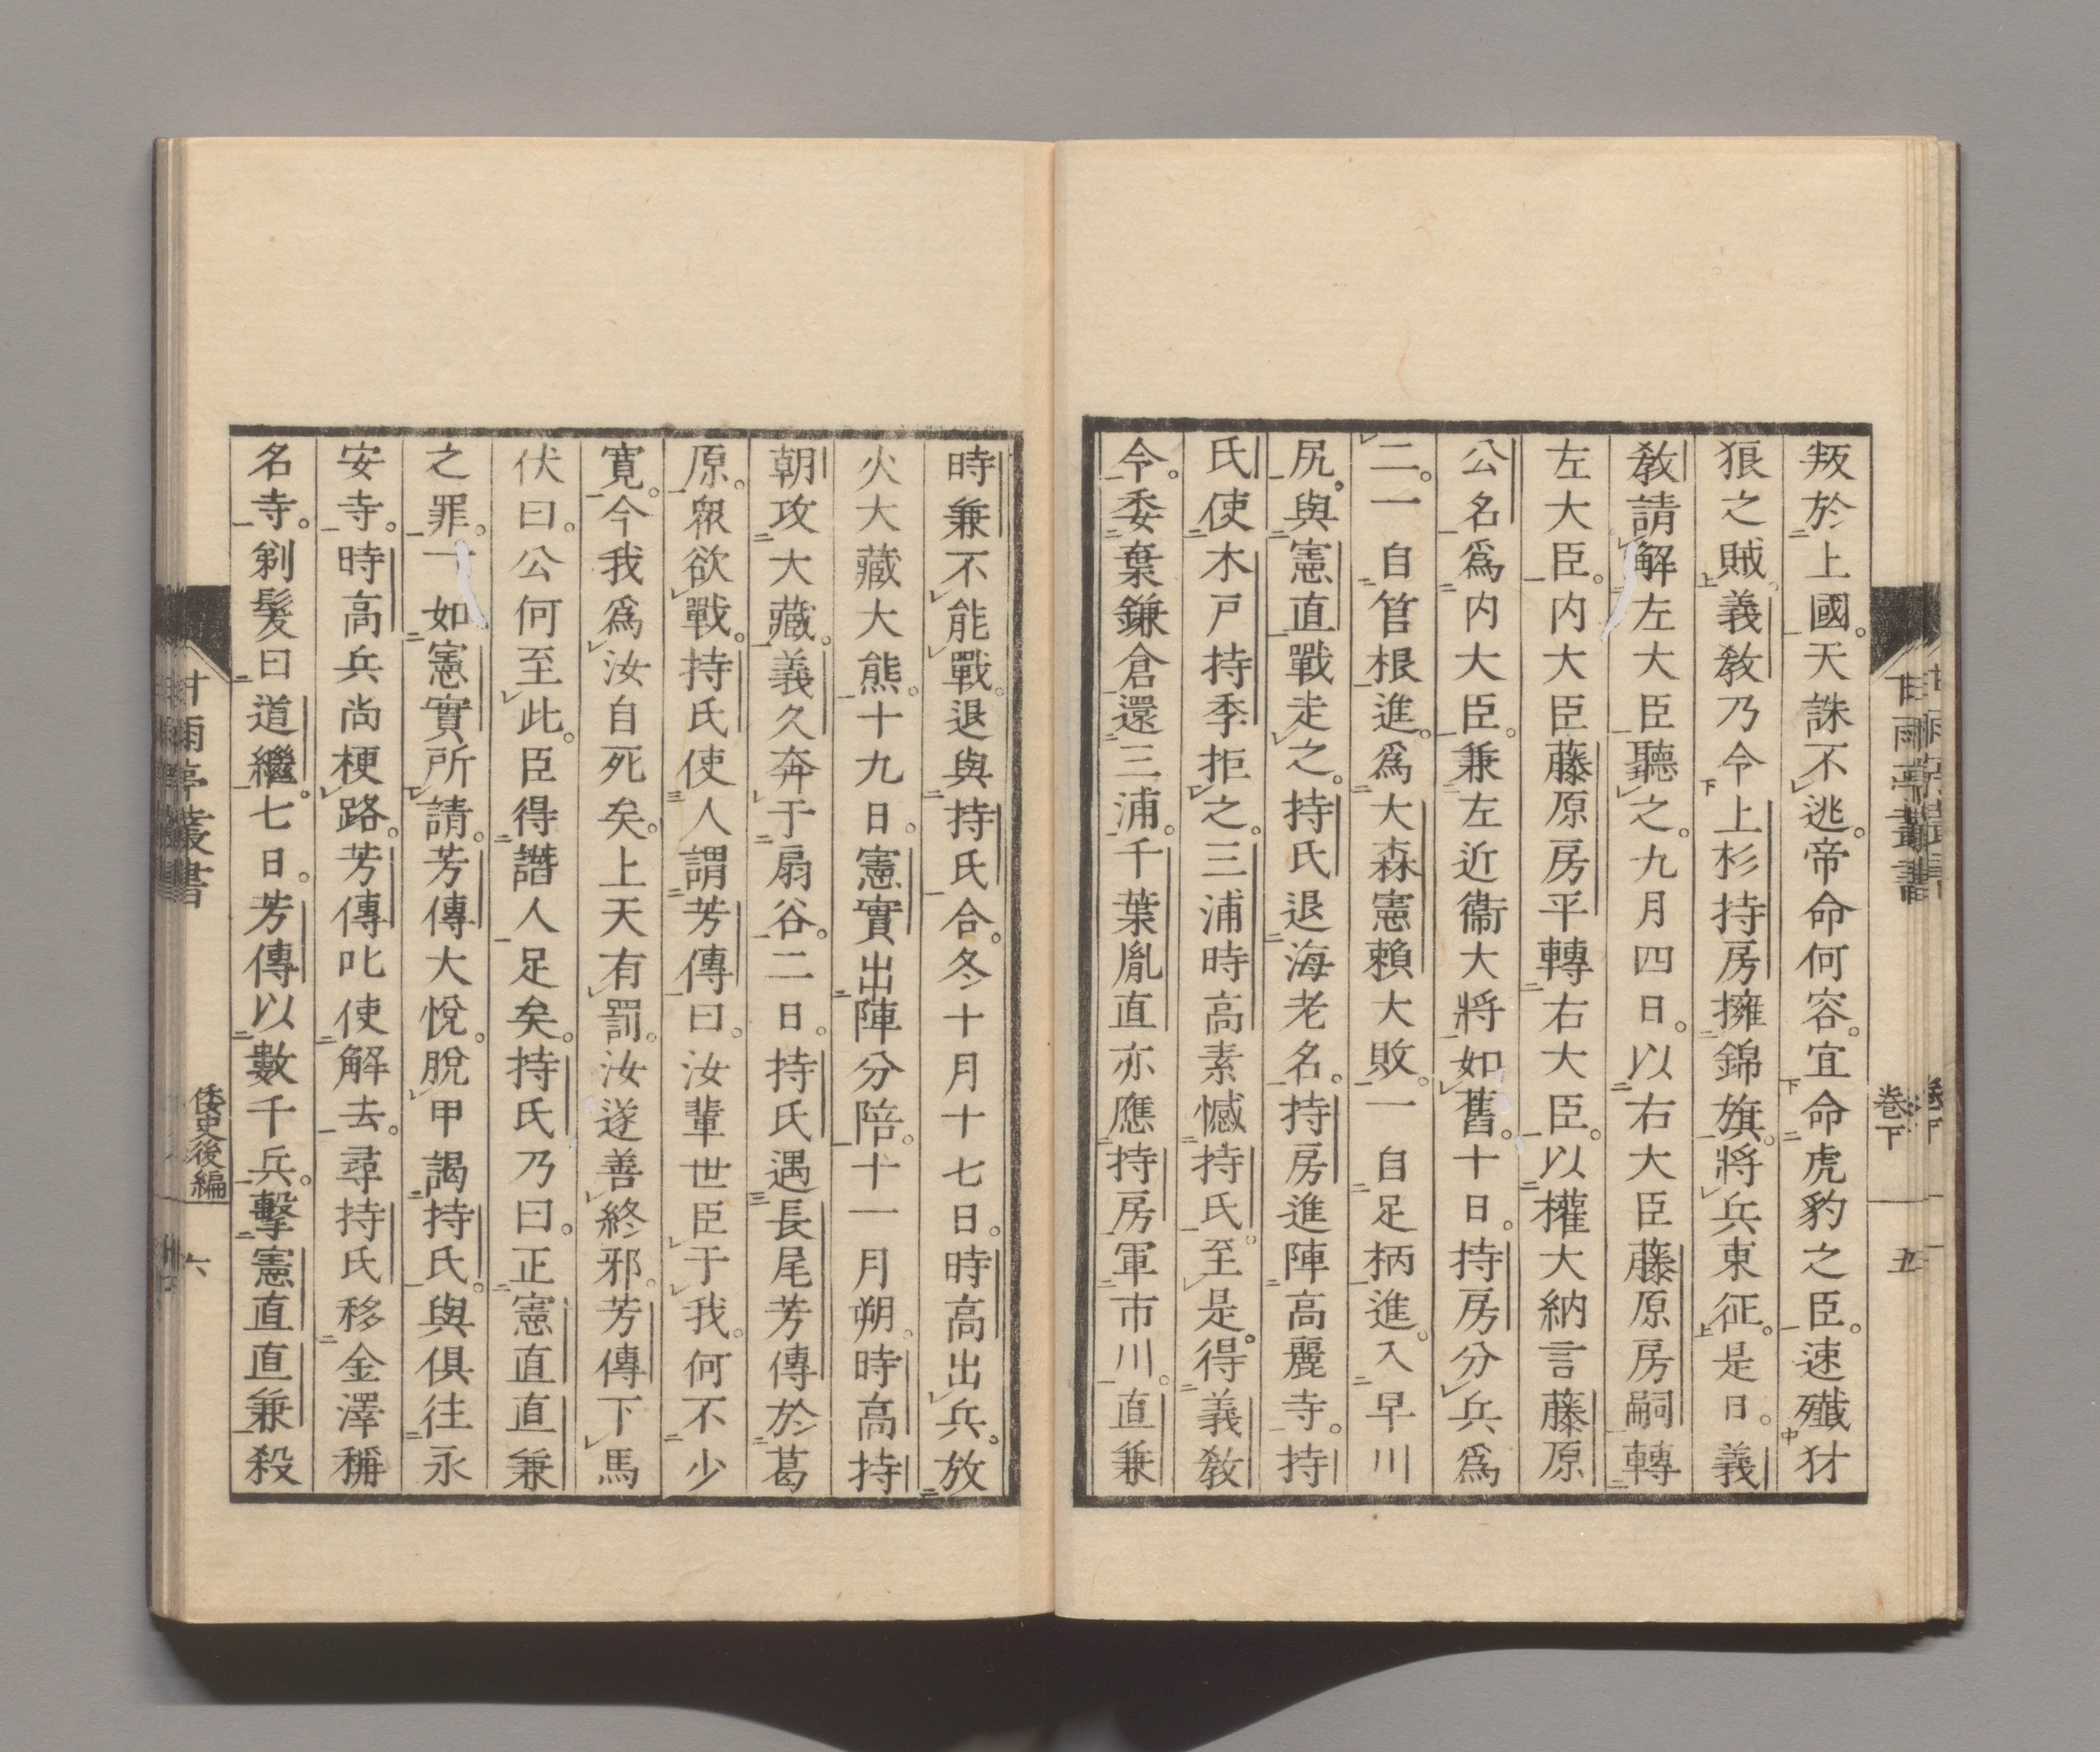 叛於上國。天誅不逃。帝命何容。宜命虎豹之臣。速殲犲
狼之賊。義敎乃令上杉持房擁錦旗。將兵東征。是日。義
敎請解左大臣聽之。九月四日。以右大臣藤原房嗣轉
左大臣。内大臣藤原房平轉右大臣。以權大納言藤原
公名爲内大臣。兼左近衞大將如舊。十日。持房分兵爲
二。一自筥根進。爲大森憲賴大敗。一自足柄進。入早川
尻。與憲直戰走之。持氏退海老名。持房進陣高麗寺。持
氏使木戸持季拒之。三浦時高素憾持氏。至是。得義敎
令。委棄鎌倉還三浦。千葉胤直亦應持房軍市川。直兼
卷下
五
時兼不能戰。退與持氏合。冬十月十七日。時高出兵。放
火大藏大熊。十九日。憲實出陣分陪。十一月朔。時高持
朝攻大藏。義久奔于扇谷。二日。持氏遇長尾芳傳於葛
原。衆欲戰。持氏使人謂芳傳曰。汝輩世臣于我。何不少
寛。今我爲汝自死矣。上天有罰。汝遂善終邪。芳傳下馬
伏曰。公何至此。臣得譖人足矣。持氏乃曰。正憲直直兼
之罪。一如憲實所請。芳傳大悅。脫甲謁持氏。與俱往永
安寺。時高兵尚梗路。芳傳叱使解去。尋持氏移金澤稱
名寺。剃髮曰道繼。七日。芳傳以數千兵。擊憲直直兼殺
甘雨亭叢書
倭史後編
六